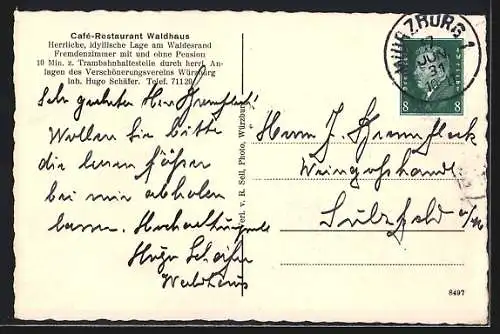 Café-Restaurant Waldhaus
Herrliche, idyllische Lage am Waldesrand
Fremdenzimmer mit und ohne Pension
10 Min. z. Trambahnhaltestelle durch herrl. An-
lagen des Verschönerungsvereins Würzburg
Inh. Hugo Schäfer. Telef. 71120
WÜRZBURG
JUN
31
8 8
Sehr geehrter Herr
Wollen Sie bitte
die leeren Fässer
bei mir abholen
lassen. Hochachtungsvoll
Hugo Schäfer
Waldhaus
Verl. v. R. Sell, Photo, Würzburg
Herrn J.
Weingrosshandl.
Sulzfeld a/M
8497